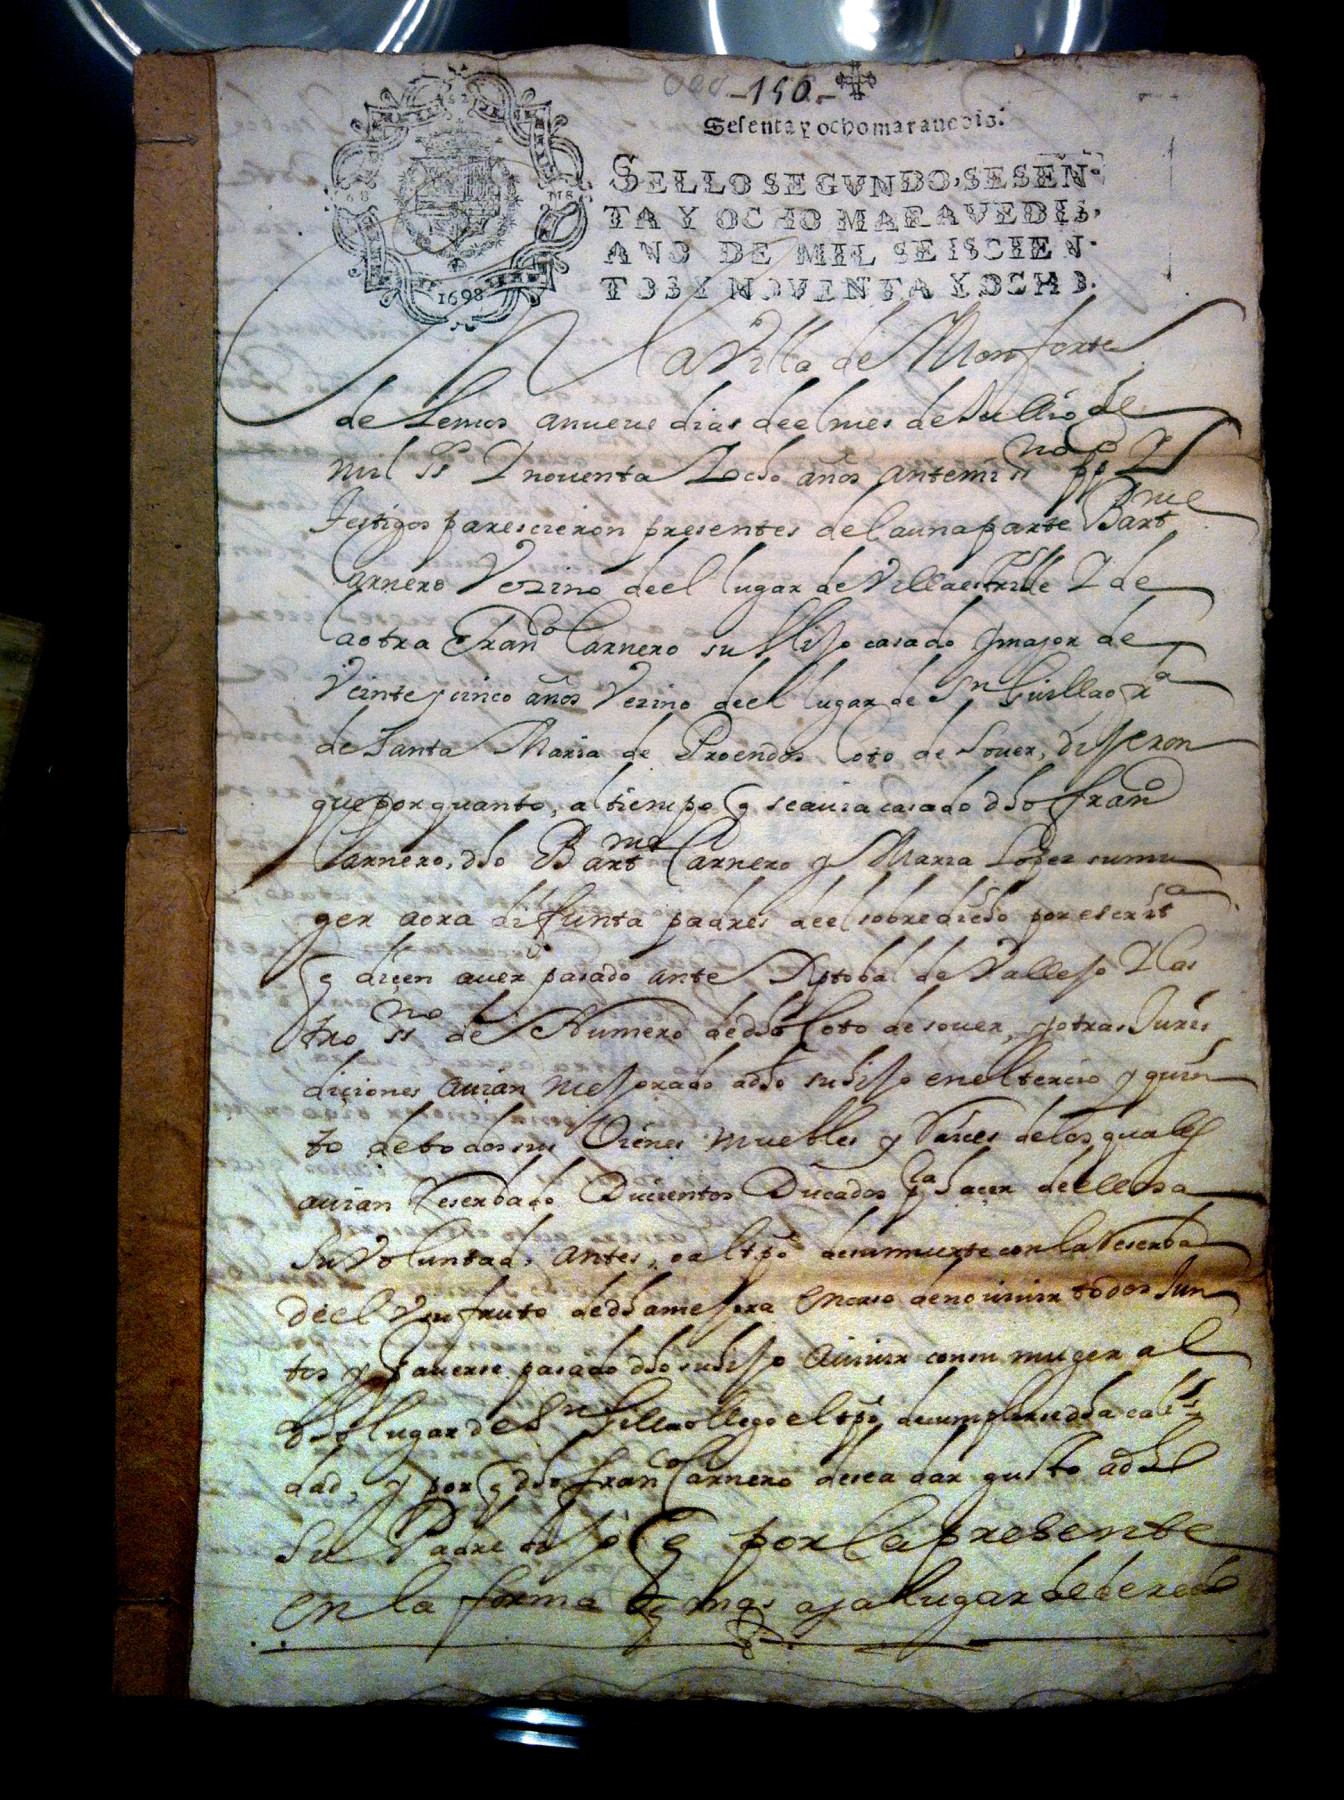 -150.-
Sesenta y ocho marauedis.
SELLO SEGVNDO, SESEN-
TA Y OCHO MARAVEDIS,
AÑO DE MIL SEISCIEN-
TOS Y NOVENTA Y OCHO.
1698
En la Villa de Monforte
de Lemos anueue dias deel mes de Jullio de
mil ss.s Y nouenta Y ocho años antemi ss.no pp.co Y
testigos parescieron presentes de la una parte Bart.me
Carnero Vezino deel lugar de Villaestrille Y de
la otra Fran.co Carnero su Hijo casado y major de
Veinte y cinco años Vezino deel lugar de S.n Guillao
de Santa Maria de Proendos Coto de Souer, dijeron
que por quanto, al tiempo q seauia casado dho Fran.co
Carnero, dho Bart.me Carnero y Maria Lopez sumu
ger aora difunta padres deel sobredicho por escrit.a
q diçen auer pasado ante Xptobal de Vallejo Y Cas
tro ss.no de Numero de dho Coto de souer, y otras Juris
diciones auian mejorado adho su hijo en el tercio y quin
to de todos sus Vienes muebles y Raices de los quales
auian Reserbado Ducientos Ducados p.a haçer de ellos a
su Voluntad, antes, o al tpo de su muerte con la Reserba
deel Vsufruto de dha mejora en caso de no viuir todos Jun
tos y hauerse pasado dho su hijo a viuir con su muger al
dho lugar de S.n Gillao llego el tpo de cumplirse dha cali
dad, y por q dho Fran.co Carnero desea dar gusto a dho
su Padre dijo q por la presente
en la forma q mas aja lugar de derecho